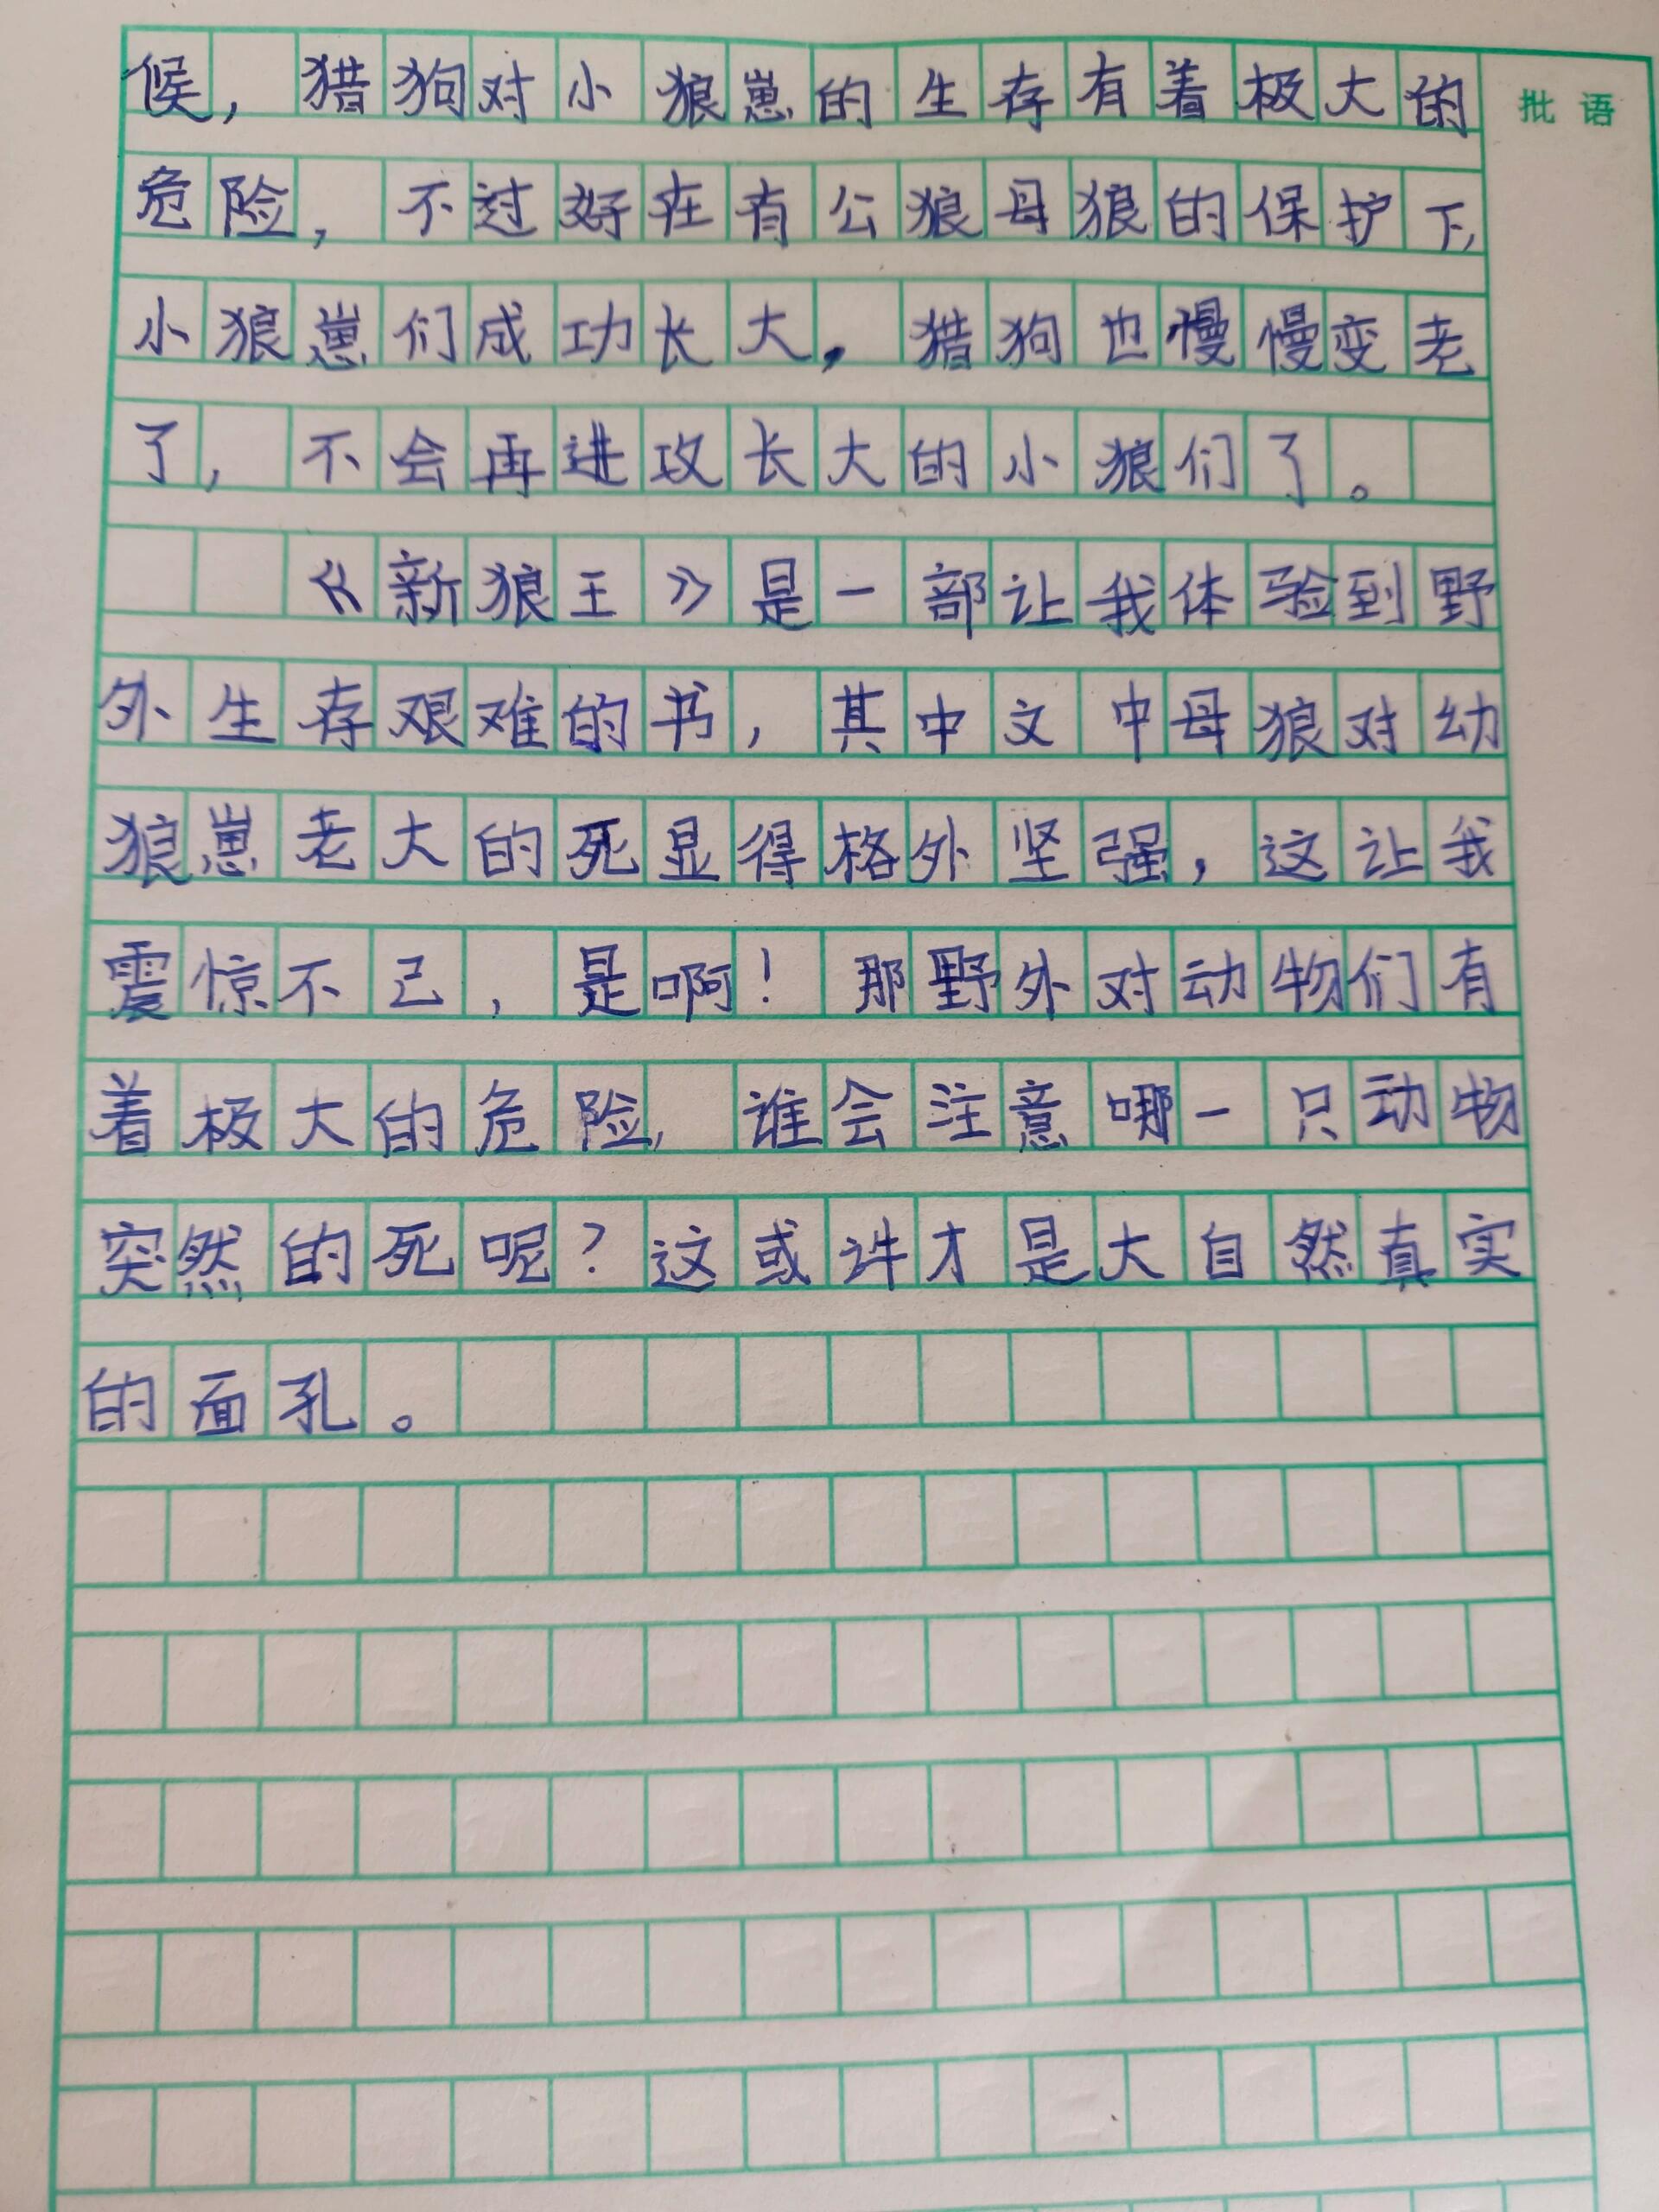 候，猎狗对小狼崽的生存有着极大的
批语
危险，不过好在有公狼母狼的保护下，
小狼崽们成功长大，猎狗也慢慢变老
了，不会再进攻长大的小狼们了。
《新狼王》是一部让我体验到野
外生存艰难的书，其中文中母狼对幼
狼崽老大的死显得格外坚强，这让我
震惊不己，是啊！那野外对动物们有
着极大的危险，谁会注意哪一只动物
突然的死呢？这或许才是大自然真实
的面孔。